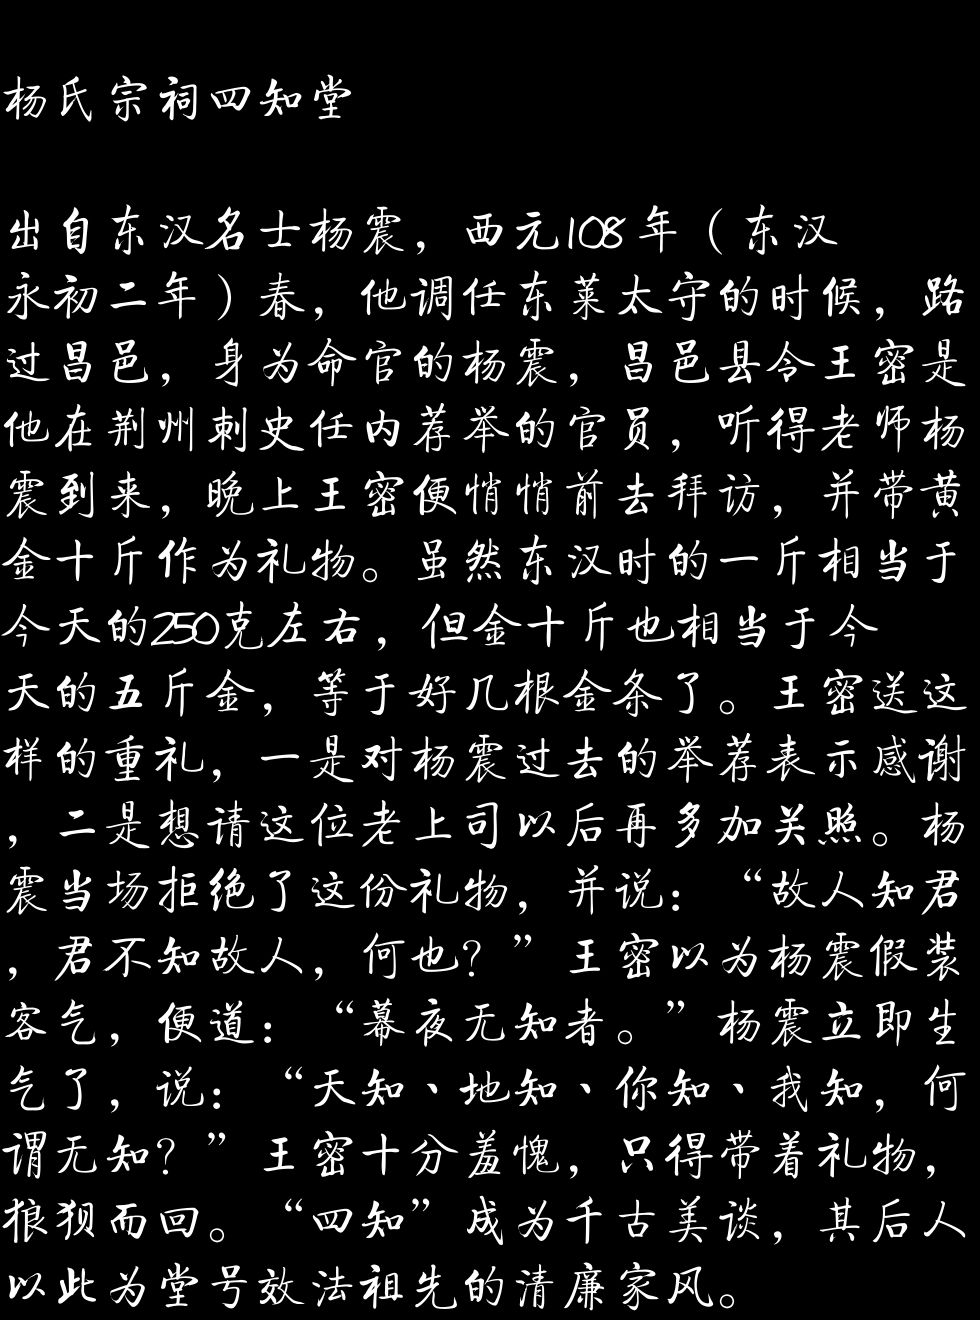 杨氏宗祠四知堂
出自东汉名士杨震，西元108年（东汉
永初二年）春，他调任东莱太守的时候，路
过昌邑，身为命官的杨震，昌邑县令王密是
他在荆州刺史任内荐举的官员，听得老师杨
震到来，晚上王密便悄悄前去拜访，并带黄
金十斤作为礼物。虽然东汉时的一斤相当于
今天的250克左右，但金十斤也相当于今
天的五斤金，等于好几根金条了。王密送这
样的重礼，一是对杨震过去的举荐表示感谢
，二是想请这位老上司以后再多加关照。杨
震当场拒绝了这份礼物，并说：“故人知君
，君不知故人，何也？”王密以为杨震假装
客气，便道：“幕夜无知者。”杨震立即生
气了，说：“天知、地知、你知、我知，何
谓无知？”王密十分羞愧，只得带着礼物，
狼狈而回。“四知”成为千古美谈，其后人
以此为堂号效法祖先的清廉家风。